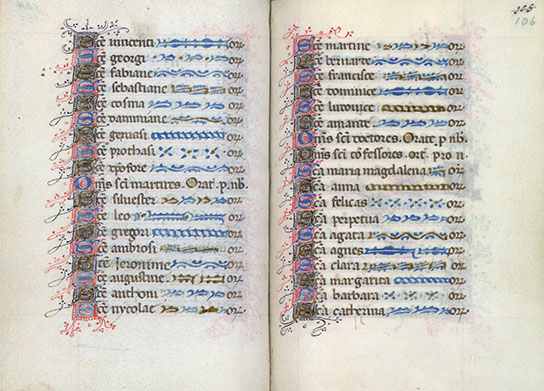 Sce innocenti or
Sce georgi or
Sce fabiane or
Sce sebastiane or
Sce cosma or
Sce dammiane or
Sce geruasi or
Sce prothasi or
Sce xpofore or
Oms sci martires. Orat. p. nb.
Sce siluester or
Sce leo or
Sce gregori or
Sce ambrosi or
Sce Jeronime or
Sce augustine or
Sce anthoni or
Sce nycolae or
106
Sce martine or
Sce bernarde or
Sce francisce or
Sce dominice or
Sce ludovice or
Sce amande or
Oms sci doctores. Orate. p nb.
Oms sci cofessores. ort. pro n.
Sca maria magdalena or
Sca anna or
Sca felicitas or
Sca perpetua or
Sca agata or
Sca agnes or
Sca clara or
Sca margarita or
Sca barbara or
Sca catherina or